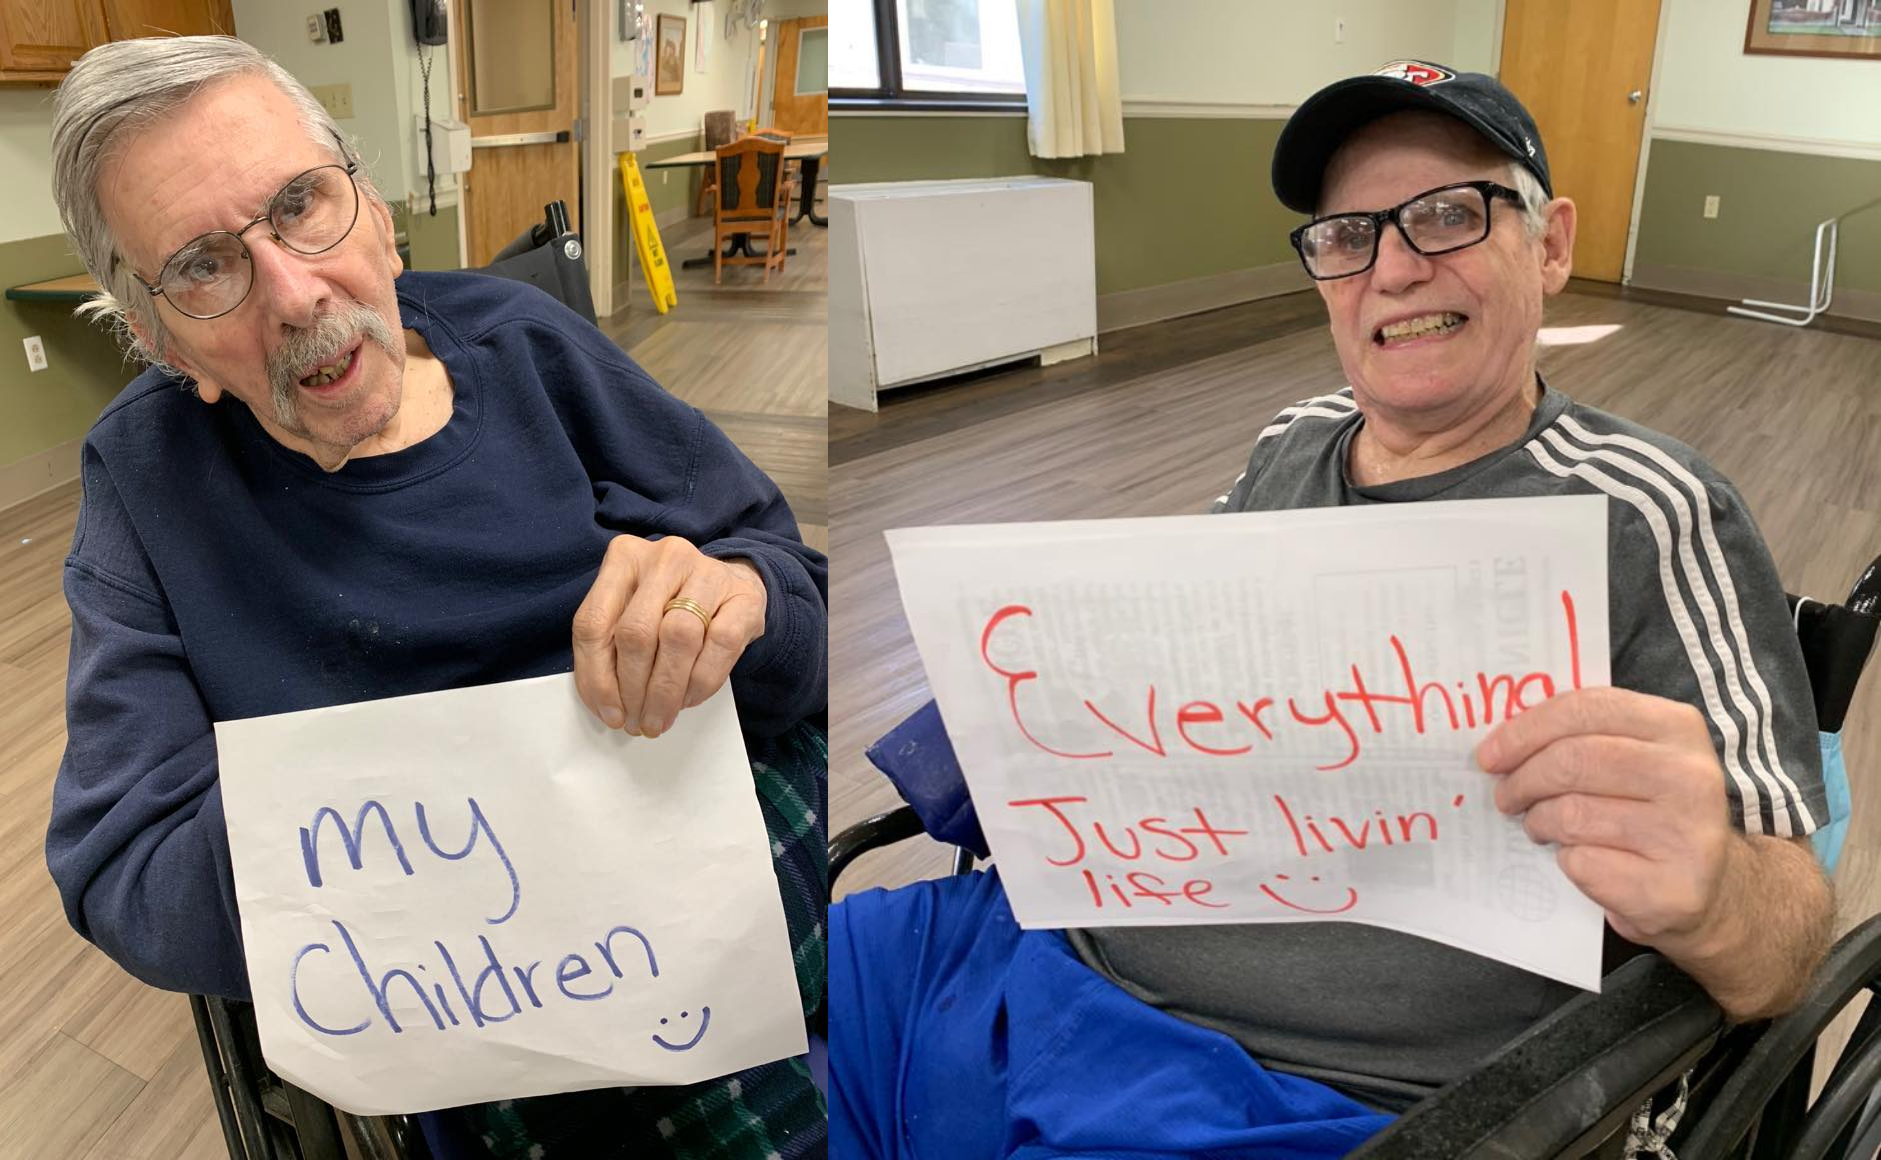 my
Children
Everything!
Just livin'
life